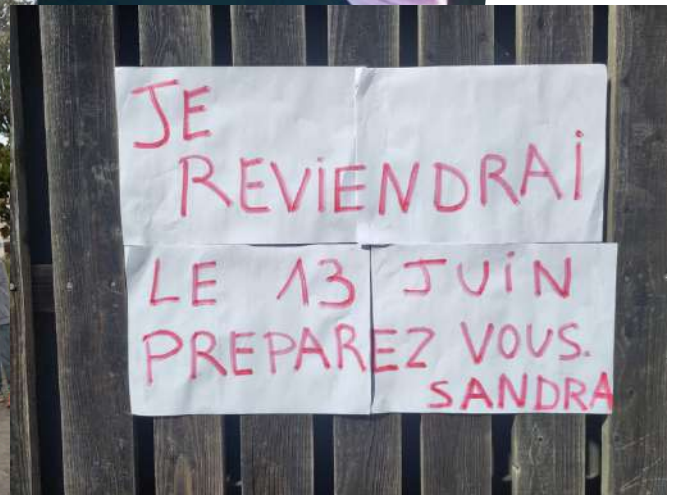 JE
REViENDRAi
LE 13 JUiN
PREPAREZ VOUS.
SANDRA